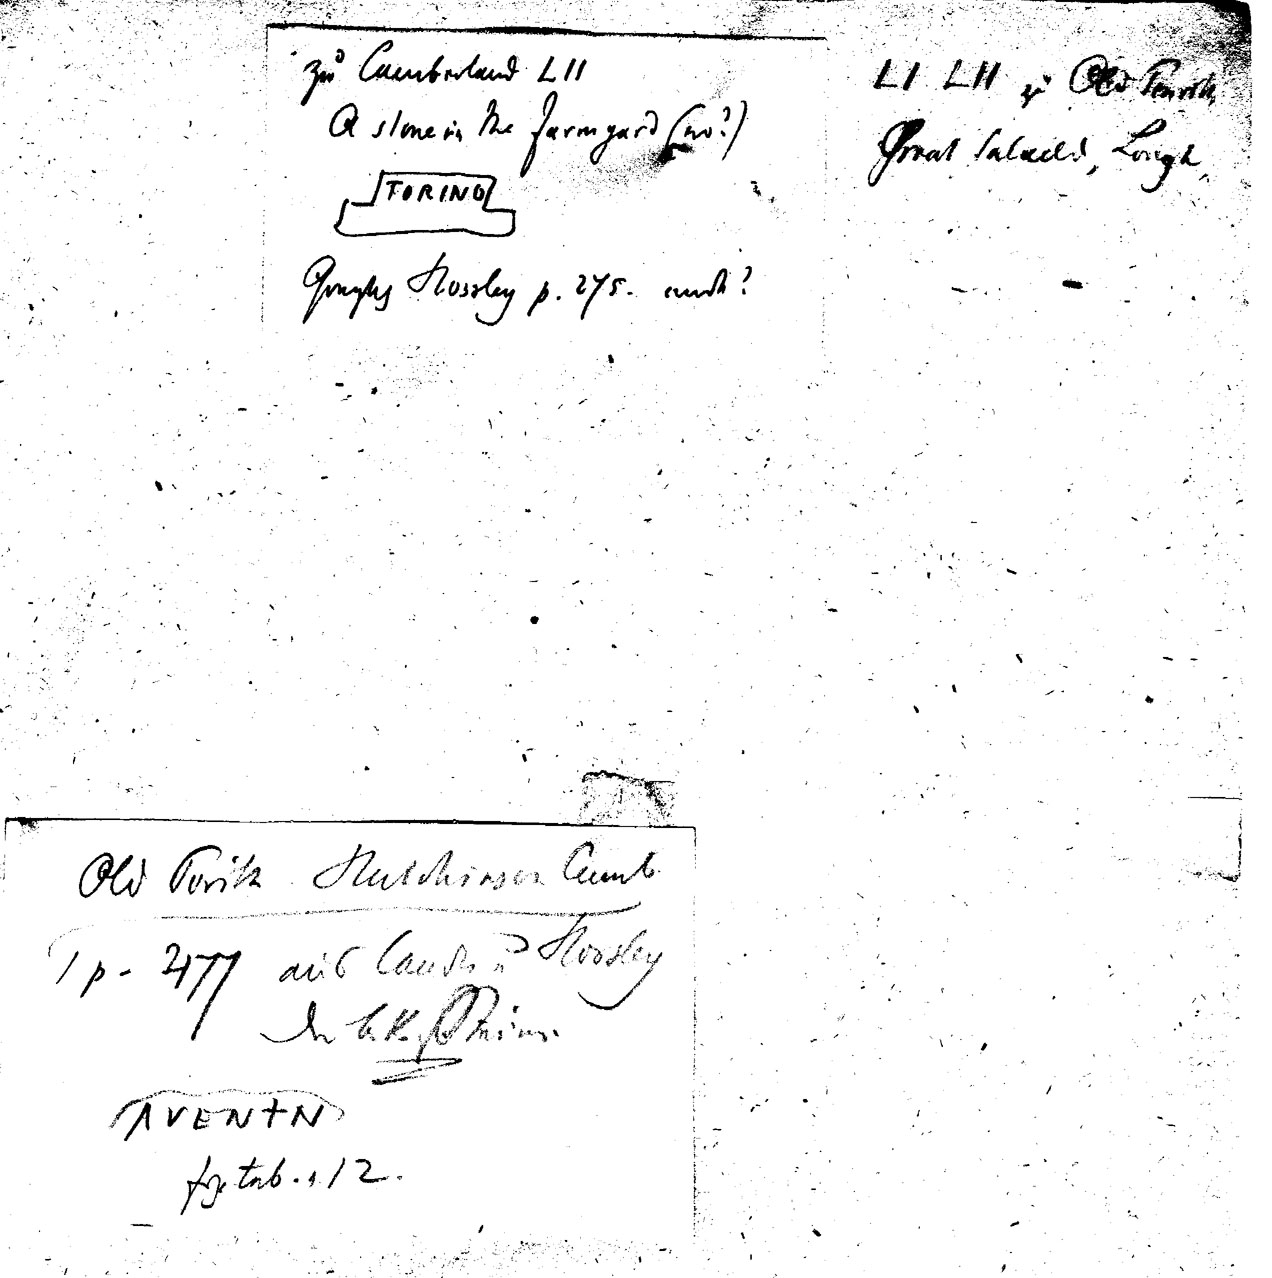 zu Cumberland LII
A stone in the farmyard (wo?)
TORINO
Horsley p. 275. auch?
LI LII zu Old Penrith,
Great Salkeld, Lough
Old Perith Hutchinson Cumb
1 p. 477 aus Camd. u Horsley
AVENTN
fig tab. 1 12.